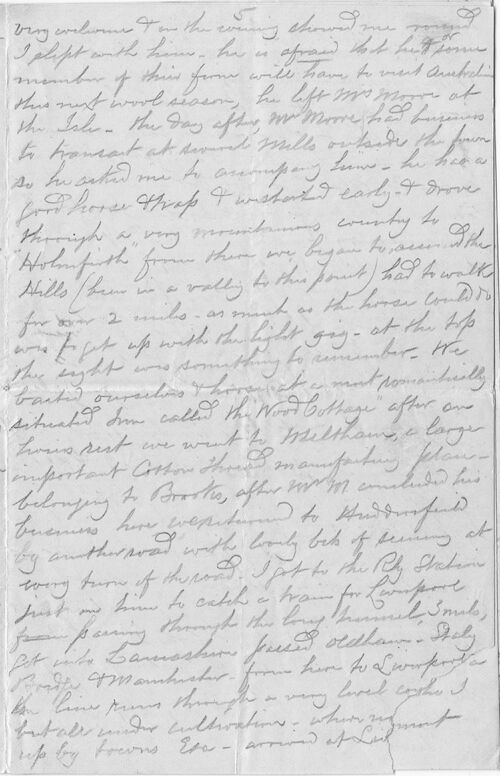 5
very welcome & in the evening showed me round
I slept with him - he is afraid that he or some
member of their firm will have to visit Australia
this next wool season, he left Mrs Moore at
the Isle - the day after, Mr Moore had business
to transact at several Mills outside the town
so he asked me to accompany him - he had a
good horse & trap & we started early & drove
through a very mountainous country to
"Holmfirth" from there we began to ascend the
Hills (been in a valley to this point) had to walk
for over 2 miles - as much as the horse could do
was to get up with the light gig - at the top
the sight was something to remember - We
baited ourselves & horse at a most romantically
situated Inn called the "Wood Cottage" after an
hours rest we went to Meltham, a large
important Cotton Thread manufacturing place -
belonging to Brooks, after Mr M concluded his
business here we returned to Huddersfield
by another road with lovely bits of scenery at
every turn of the road. I got to the Rly Station
just in time to catch a train for Liverpool
passing through the long tunnel 3 miles,
got into Lancashire passed Oldham - Staly
Bridge & Manchester - from here to Liverpool
line runs through a very level
but all under cultivation - where not
up by towns Etc - arrived at